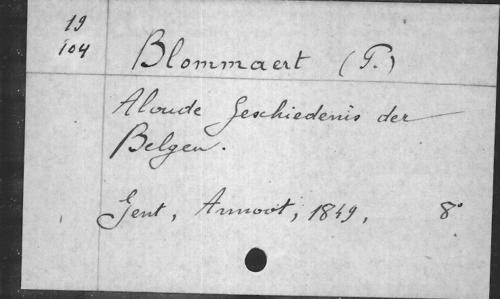 19
104
Blommaert (P.)
Aloude Geschiedenis der
Belgen.
Gent, Annoot, 1849, 8°